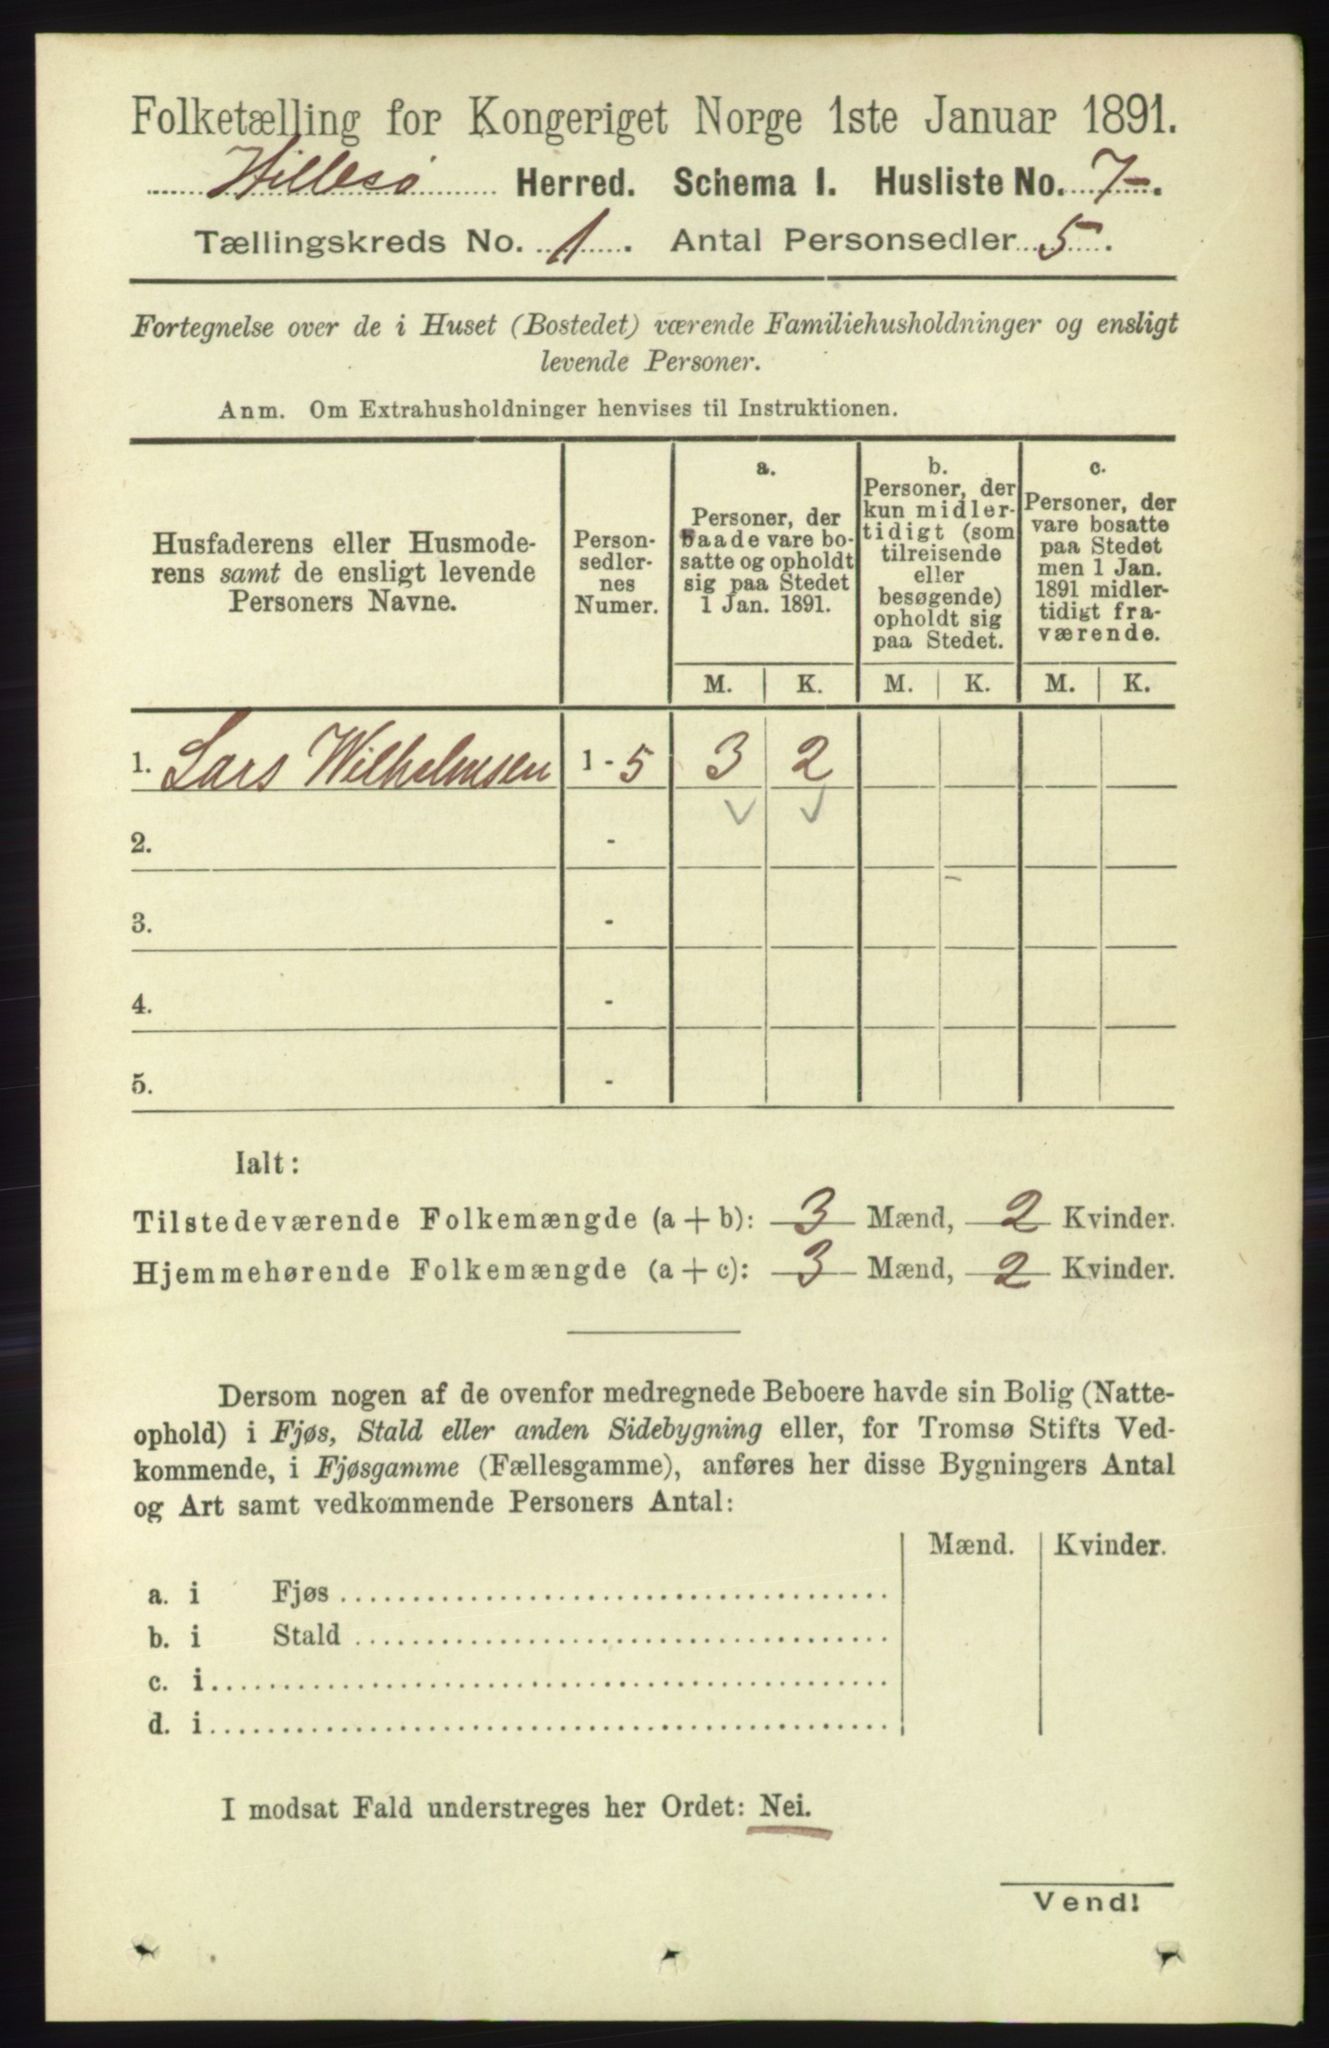 Folketælling for Kongeriget Norge 1ste Januar 1891.
Hillesø Herred. Schema I. Husliste No. 7-.
Tællingskreds No. 1. Antal Personsedler 5.
Fortegnelse over de i Huset (Bostedet) værende Familiehusholdninger og ensligt
levende Personer.
Anm. Om Extrahusholdninger henvises til Instruktionen.
Husfaderens eller Husmode-
rens samt de ensligt levende
Personers Navne.
Person-
sedler-
nes
Numer.
a.
Personer, der
baade vare bo-
satte og opholdt
sig paa Stedet
1 Jan. 1891.
b.
Personer, der
kun midler-
tidigt (som
tilreisende
eller
besøgende)
opholdt sig
paa Stedet.
c.
Personer, der
vare bosatte
paa Stedet
men 1 Jan.
1891 midler-
tidigt fra-
værende.
M. K. M. K. M. K.
1. Lars Wilhelmsen 1-5 3 2
2. -
3. -
4. -
5. -
Ialt:
Tilstedeværende Folkemængde (a + b): 3 Mænd, 2 Kvinder.
Hjemmehørende Folkemængde (a + c): 3 Mænd, 2 Kvinder.
Dersom nogen af de ovenfor medregnede Beboere havde sin Bolig (Natte-
ophold) i Fjøs, Stald eller anden Sidebygning eller, for Tromsø Stifts Ved-
kommende, i Fjøsgamme (Fællesgamme), anføres her disse Bygningers Antal
og Art samt vedkommende Personers Antal:
Mænd. Kvinder.
a. i Fjøs
b. i Stald
c. i
d. i
I modsat Fald understreges her Ordet: Nei.
Vend!